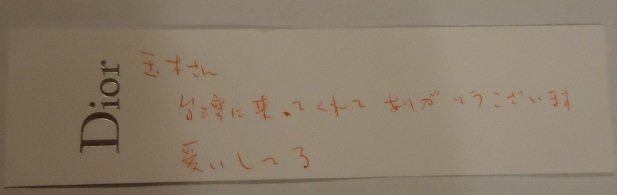 Dior
玉木さん
台湾に来てくれてありがとうございます
愛いしてる